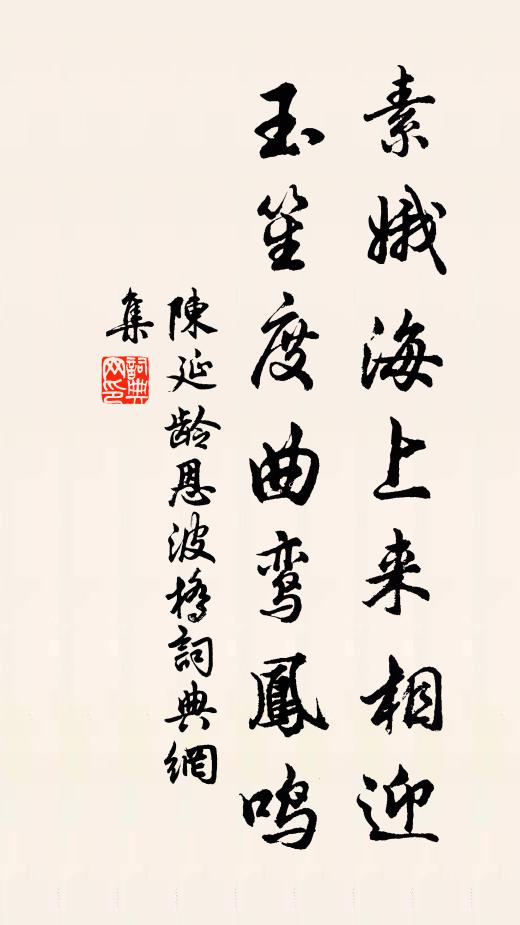 素娥海上来相迎
玉笙度曲鸾鳳鸣
陳延龄恩波橋詞典網
集
詞典
网印